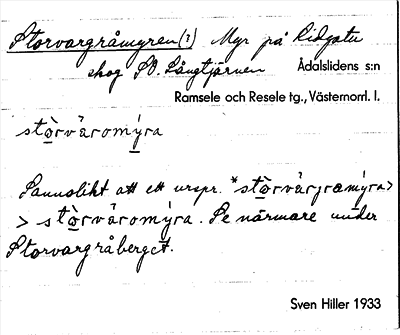 Storvargråmyren(?) Myr på Lidgatu
skog SO. Långtjärnen Ådalslidens s:n
Ramsele och Resele tg., Västernorrl. l.
stòrvȧromýra
Sannolikt att ett urspr. *stòrvȧrȷramýra>
> stòrvȧromýra. Se närmare under
Storvargråberget.
Sven Hiller 1933